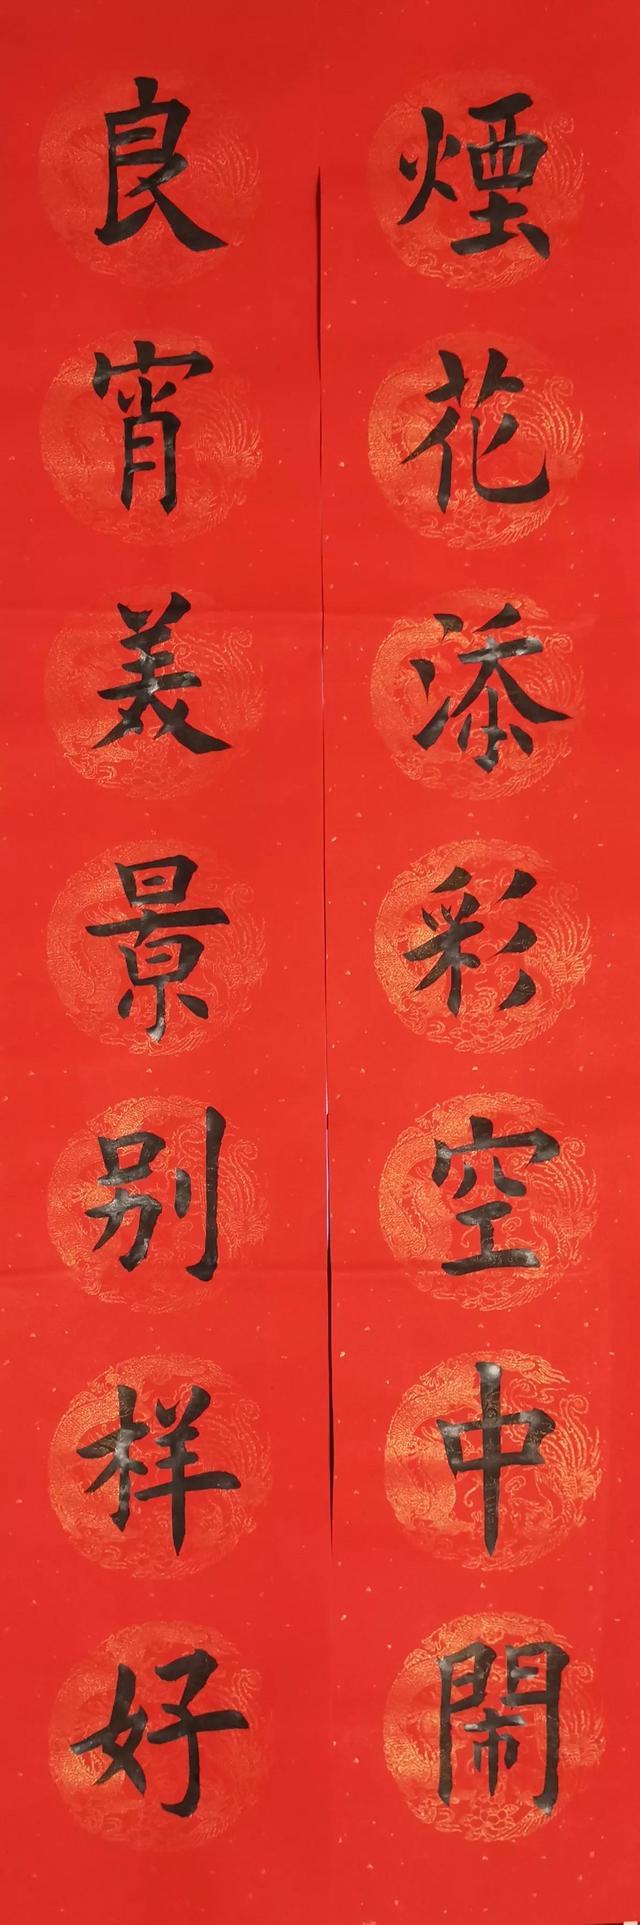 煙花添彩空中鬧
良宵美景别样好